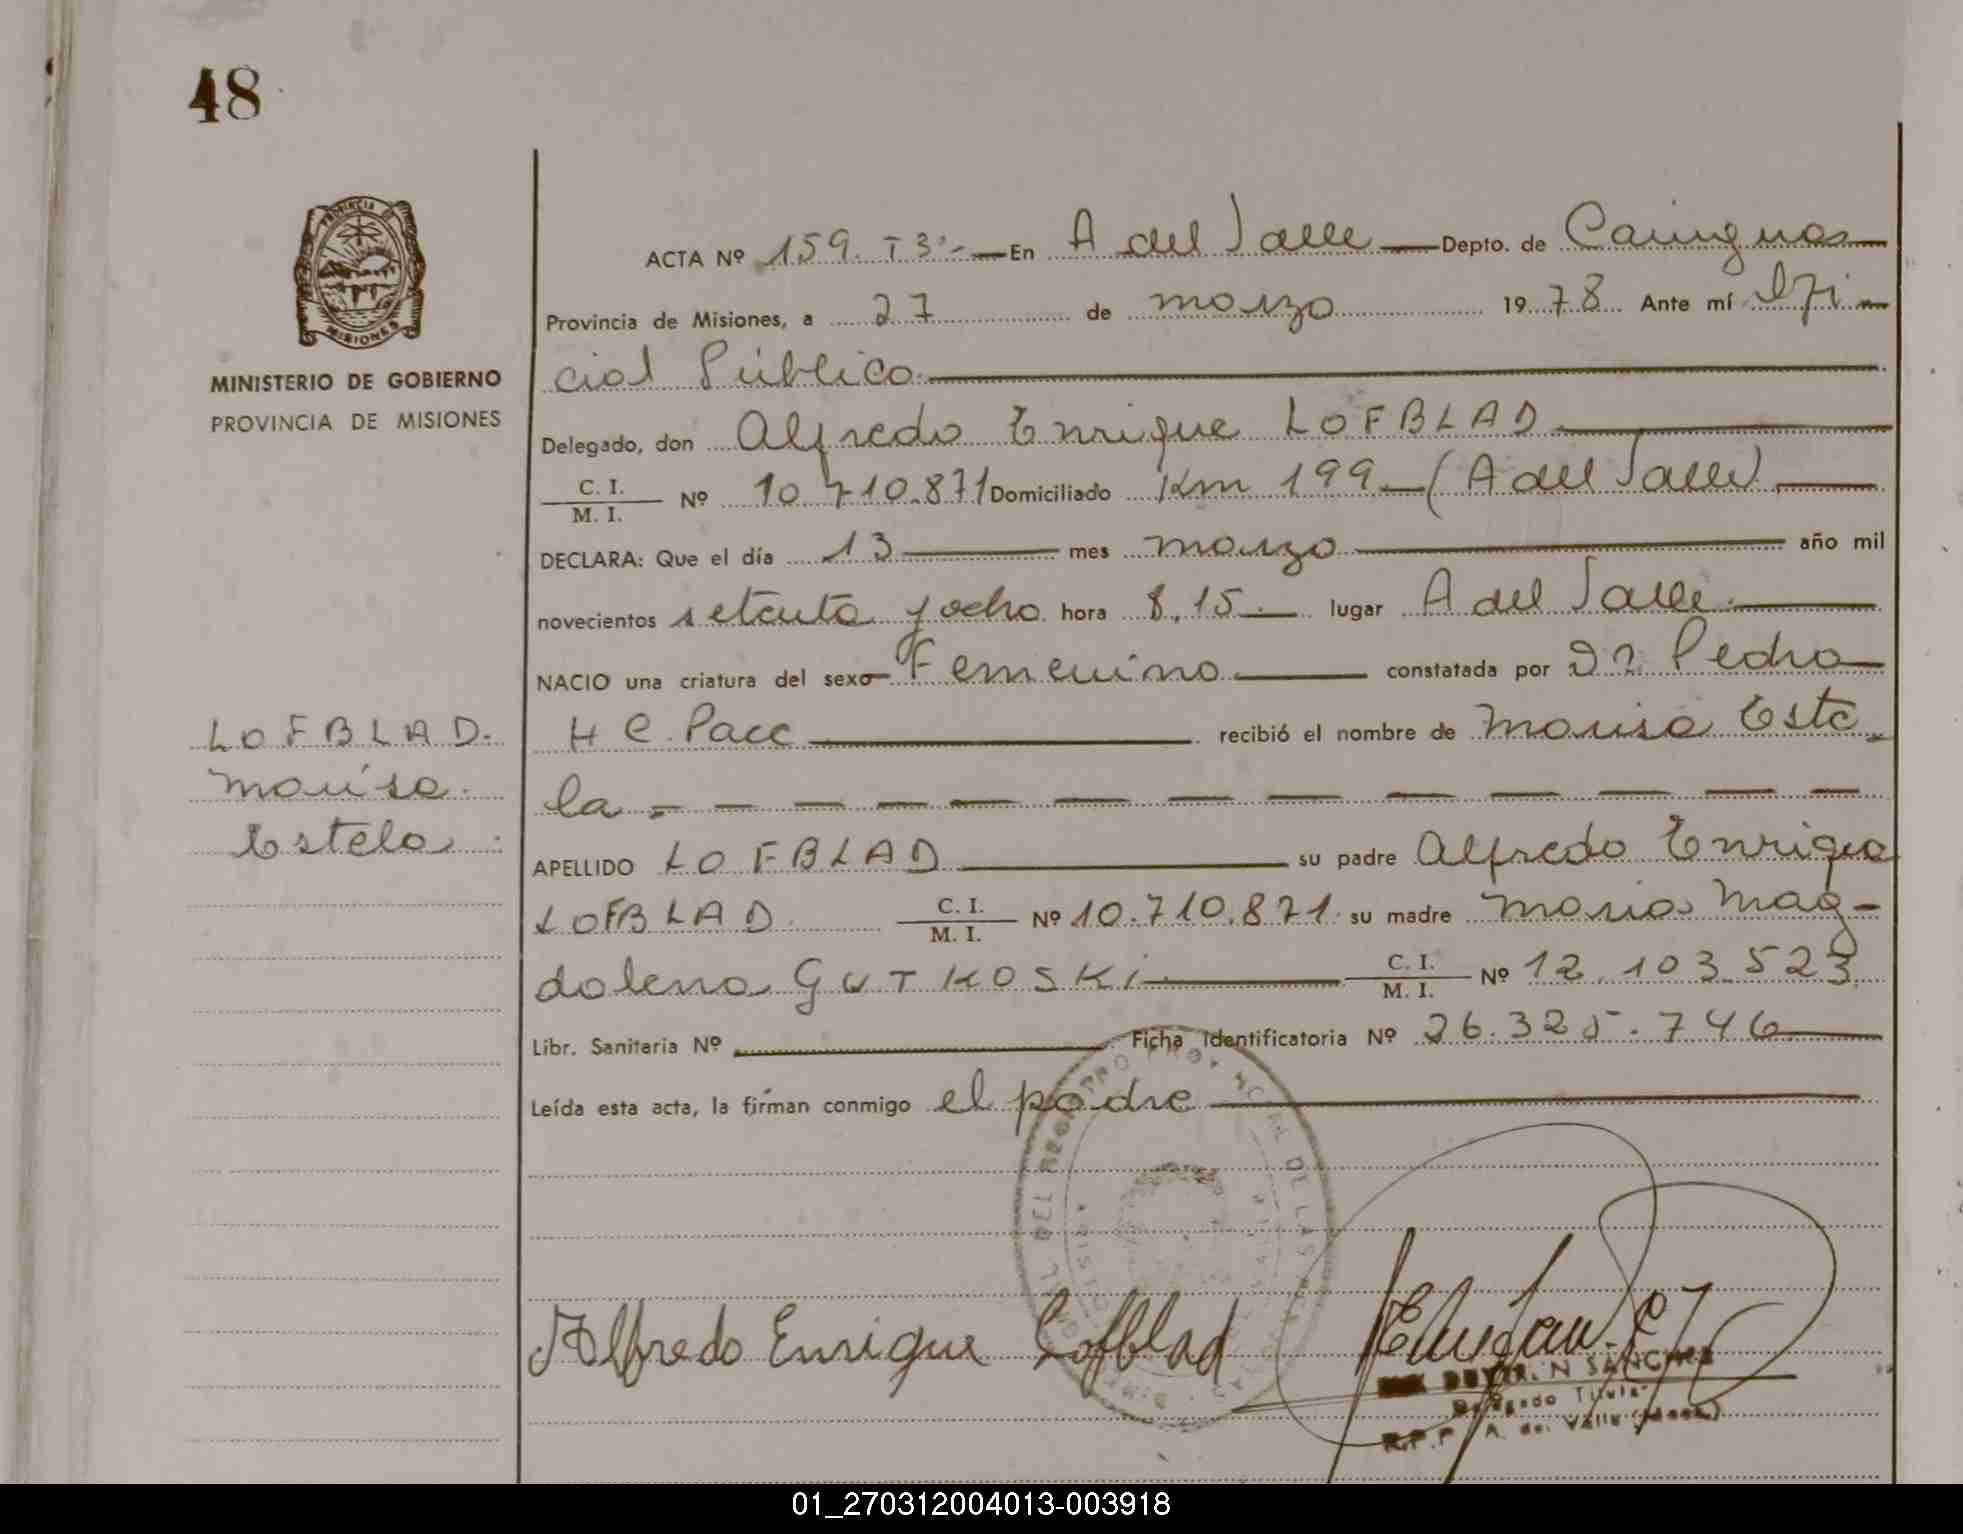 48
PROVINCIA DE
MISIONES
MINISTERIO DE GOBIERNO
PROVINCIA DE MISIONES
ACTA Nº 159. T 3 - En A del Valle Depto. de Cainguas
Provincia de Misiones, a 27 de marzo 1978 Ante mí Ofi
cial Público
Delegado, don Alfredo Enrique LOFBLAD
C. I.
M. I. Nº 10.710.871 Domiciliado Km 199 - (A del Valle)
DECLARA: Que el día 13 mes marzo año mil
novecientos setenta y ocho hora 8.15 lugar A del Valle
NACIO una criatura del sexo Femenino constatada por Dr Pedro
H C. Pace recibió el nombre de Marisa Este
la
LOFBLAD.
Marisa.
Estela
APELLIDO LOFBLAD su padre Alfredo Enrique
LOFBLAD C. I.
M. I. Nº 10.710.871 su madre Maria Mag-
dalena GUTKOSKi C. I.
M. I. Nº 12.103.523
Libr. Sanitaria Nº Ficha Identificatoria Nº 26.325.746
Leída esta acta, la firman conmigo el padre
DEL REG DE LAS
Alfredo Enrique Lofblad
N SANCHEZ
Delegado Titular
R.P.P. A. del Valle
01_270312004013-003918